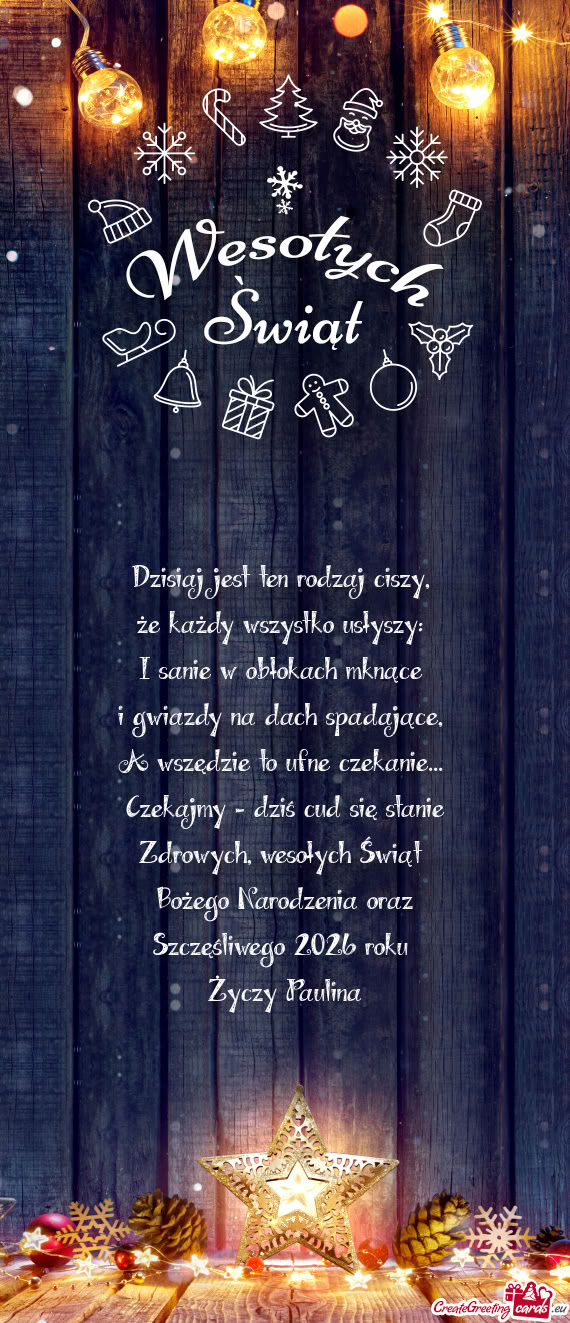 Wesołych
Świąt
Dzisiaj jest ten rodzaj ciszy,
że każdy wszystko usłyszy:
I sanie w obłokach mknące
i gwiazdy na dach spadające,
A wszędzie to ufne czekanie...
Czekajmy - dziś cud się stanie
Zdrowych, wesołych Świąt
Bożego Narodzenia oraz
Szczęśliwego 2026 roku
Życzy Paulina
CreateGreeting cards .eu